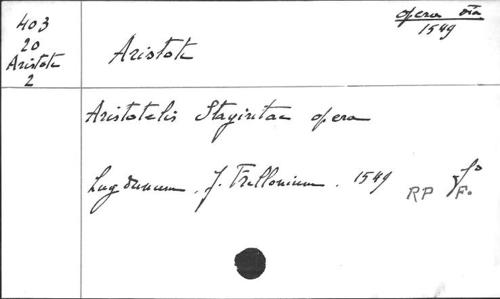 403
20
Aristote
2
Aristote
opera oia
1549
Aristotelis Stagiritae opera
Lugdunum, J. Frellonium. 1549
RP
fo
F.